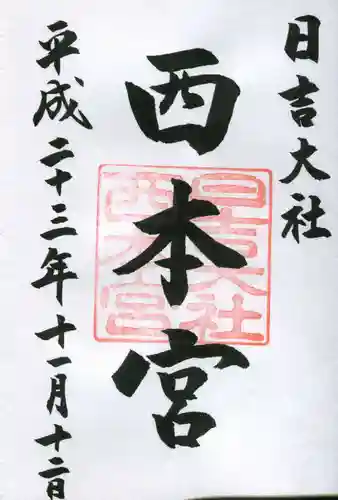 日吉大社
西本宮
平成二十三年十一月十二日
日吉大社
西本宮